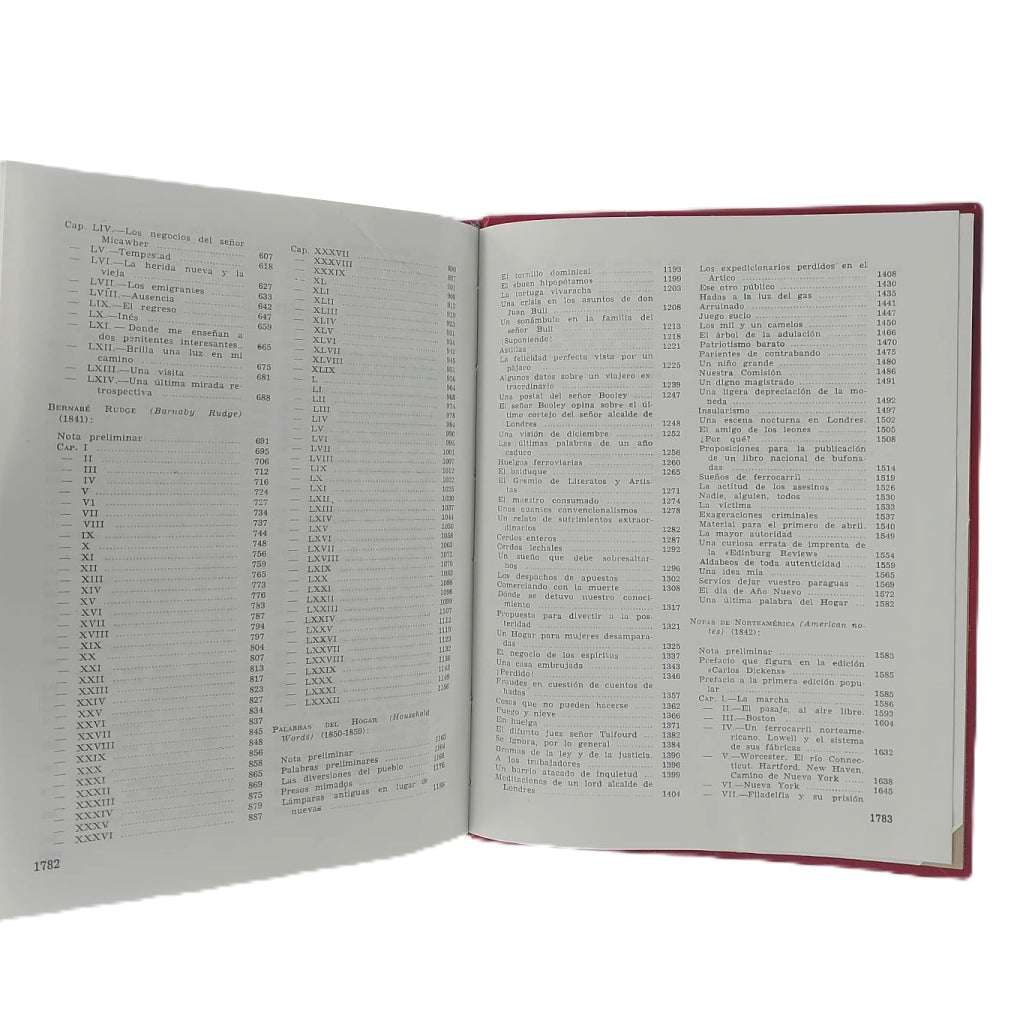 Cap. LIV.—Los negocios del señor
Micawber ........ 607
— LV.—Tempestad ........ 618
— LVI.—La herida nueva y la
vieja ........ 627
— LVII.—Los emigrantes ........ 633
— LVIII.—Ausencia ........ 642
— LIX.—El regreso ........ 647
— LX.—Inés ........ 659
— LXI.—Donde me enseñan a
dos penitentes interesantes.. 665
— LXII.—Brilla una luz en mi
camino ........ 675
— LXIII.—Una visita ........ 681
— LXIV.—Una última mirada re-
trospectiva ........ 688
BERNABÉ RUDGE (Barnaby Rudge)
(1841):
Nota preliminar ........ 691
CAP. I ........ 695
— II ........ 706
— III ........ 712
— IV ........ 716
— V ........ 724
— VI ........ 727
— VII ........ 734
— VIII ........ 737
— IX ........ 744
— X ........ 748
— XI ........ 756
— XII ........ 759
— XIII ........ 765
— XIV ........ 773
— XV ........ 776
— XVI ........ 783
— XVII ........ 787
— XVIII ........ 794
— XIX ........ 797
— XX ........ 804
— XXI ........ 807
— XXII ........ 813
— XXIII ........ 817
— XXIV ........ 823
— XXV ........ 827
— XXVI ........ 834
— XXVII ........ 837
— XXVIII ........ 845
— XXIX ........ 848
— XXX ........ 856
— XXXI ........ 858
— XXXII ........ 865
— XXXIII ........ 869
— XXXIV ........ 875
— XXXV ........ 879
— XXXVI ........ 887
1782
Cap. XXXVII ........
— XXXVIII ........ 897
— XXXIX ........ 901
— XL ........
— XLI ........ 912
— XLII ........
— XLIII ........ 925
— XLIV ........
— XLV ........
— XLVI ........
— XLVII ........
— XLVIII ........
— XLIX ........
— L ........
— LI ........
— LII ........
— LIII ........
— LIV ........
— LV ........
— LVI ........
— LVII ........
— LVIII ........
— LIX ........
— LX ........
— LXI ........ 1025
— LXII ........ 1030
— LXIII ........ 1037
— LXIV ........ 1044
— LXV ........ 1050
— LXVI ........ 1058
— LXVII ........ 1063
— LXVIII ........ 1071
— LXIX ........ 1076
— LXX ........ 1083
— LXXI ........ 1088
— LXXII ........ 1092
— LXXIII ........ 1099
— LXXIV ........ 1107
— LXXV ........ 1112
— LXXVI ........ 1119
— LXXVII ........ 1123
— LXXVIII ........ 1130
— LXXIX ........ 1136
— LXXX ........ 1143
— LXXXI ........ 1148
— LXXXII ........ 1156
PALABRAS DEL HOGAR (Household
Words) (1850-1859):
Nota preliminar ........ 1163
Palabras preliminares ........ 1164
Las diversiones del pueblo ........ 1166
Presos mimados ........ 1176
Lámparas antiguas en lugar de
nuevas ........ 1188
El tornillo dominical ........ 1193
El «buen hipopótamo» ........ 1199
La tortuga vivaracha ........ 1203
Una crisis en los asuntos de don
Juan Bull ........ 1208
Un sonámbulo en la familia del
señor Bull ........ 1213
¡Suponiendo! ........ 1218
Astillas ........ 1221
La felicidad perfecta vista por un
pájaro ........ 1225
Algunos datos sobre un viajero ex-
traordinario ........ 1239
Una postal del señor Booley ........ 1247
El señor Booley opina sobre el úl-
timo cortejo del señor alcalde de
Londres ........ 1248
Una visión de diciembre ........ 1252
Las últimas palabras de un año
caduco ........ 1256
Huelgas ferroviarias ........ 1260
El balduque ........ 1265
El Gremio de Literatos y Artis-
tas ........ 1271
El maestro consumado ........ 1274
Unos cuantos convencionalismos ... 1278
Un relato de sufrimientos extraor-
dinarios ........ 1282
Cerdos enteros ........ 1287
Cerdos lechales ........ 1292
Un sueño que debe sobresaltar-
nos ........ 1296
Los despachos de apuestas ........ 1302
Comerciando con la muerte ........ 1308
Dónde se detuvo nuestro conoci-
miento ........ 1317
Propuesta para divertir a la pos-
teridad ........ 1321
Un Hogar para mujeres desampara-
das ........ 1325
El negocio de los espíritus ........ 1337
Una casa embrujada ........ 1343
¡Perdido! ........ 1346
Fraudes en cuestión de cuentos de
hadas ........ 1357
Cosas que no pueden hacerse ... 1362
Fuego y nieve ........ 1366
En huelga ........ 1371
El difunto juez señor Talfourd ... 1382
Se ignora, por lo general ........ 1384
Bromas de la ley y de la justicia. 1390
A los trabajadores ........ 1396
Un barrio atacado de inquietud ... 1399
Meditaciones de un lord alcalde de
Londres ........ 1404
Los expedicionarios perdidos en el
Artico ........ 1408
Ese otro público ........ 1430
Hadas a la luz del gas ........ 1435
Arruinado ........ 1441
Juego sucio ........ 1447
Los mil y un camelos ........ 1450
El árbol de la adulación ........ 1466
Patriotismo barato ........ 1470
Parientes de contrabando ........ 1475
Un niño grande ........ 1480
Nuestra Comisión ........ 1486
Un digno magistrado ........ 1491
Una ligera depreciación de la mo-
neda ........ 1492
Insularismo ........ 1497
Una escena nocturna en Londres. 1502
El amigo de los leones ........ 1505
¿Por qué? ........ 1508
Proposiciones para la publicación
de un libro nacional de bufona-
das ........ 1514
Sueños de ferrocarril ........ 1519
La actitud de los asesinos ........ 1526
Nadie, alguien, todos ........ 1530
La víctima ........ 1533
Exageraciones criminales ........ 1537
Material para el primero de abril. 1540
La mayor autoridad ........ 1549
Una curiosa errata de imprenta de
la «Edinburg Review» ........ 1554
Aldabeos de toda autenticidad ... 1559
Una idea mía ........ 1565
Servíos dejar vuestro paraguas ... 1569
El día de Año Nuevo ........ 1572
Una última palabra del Hogar ... 1582
NOTAS DE NORTEAMÉRICA (American no-
tes) (1842):
Nota preliminar ........ 1583
Prefacio que figura en la edición
«Carlos Dickens» ........ 1585
Prefacio a la primera edición popu-
lar ........ 1585
CAP. I.—La marcha ........ 1586
— II.—El pasaje, al aire libre. 1593
— III.—Boston ........ 1604
— IV.—Un ferrocarril norteame-
ricano. Lowell y el sistema
de sus fábricas ........ 1632
— V.—Worcester. El río Connec-
ticut. Hartford. New Haven.
Camino de Nueva York ... 1638
— VI.—Nueva York ........ 1645
— VII.—Filadelfia y su prisión
1783